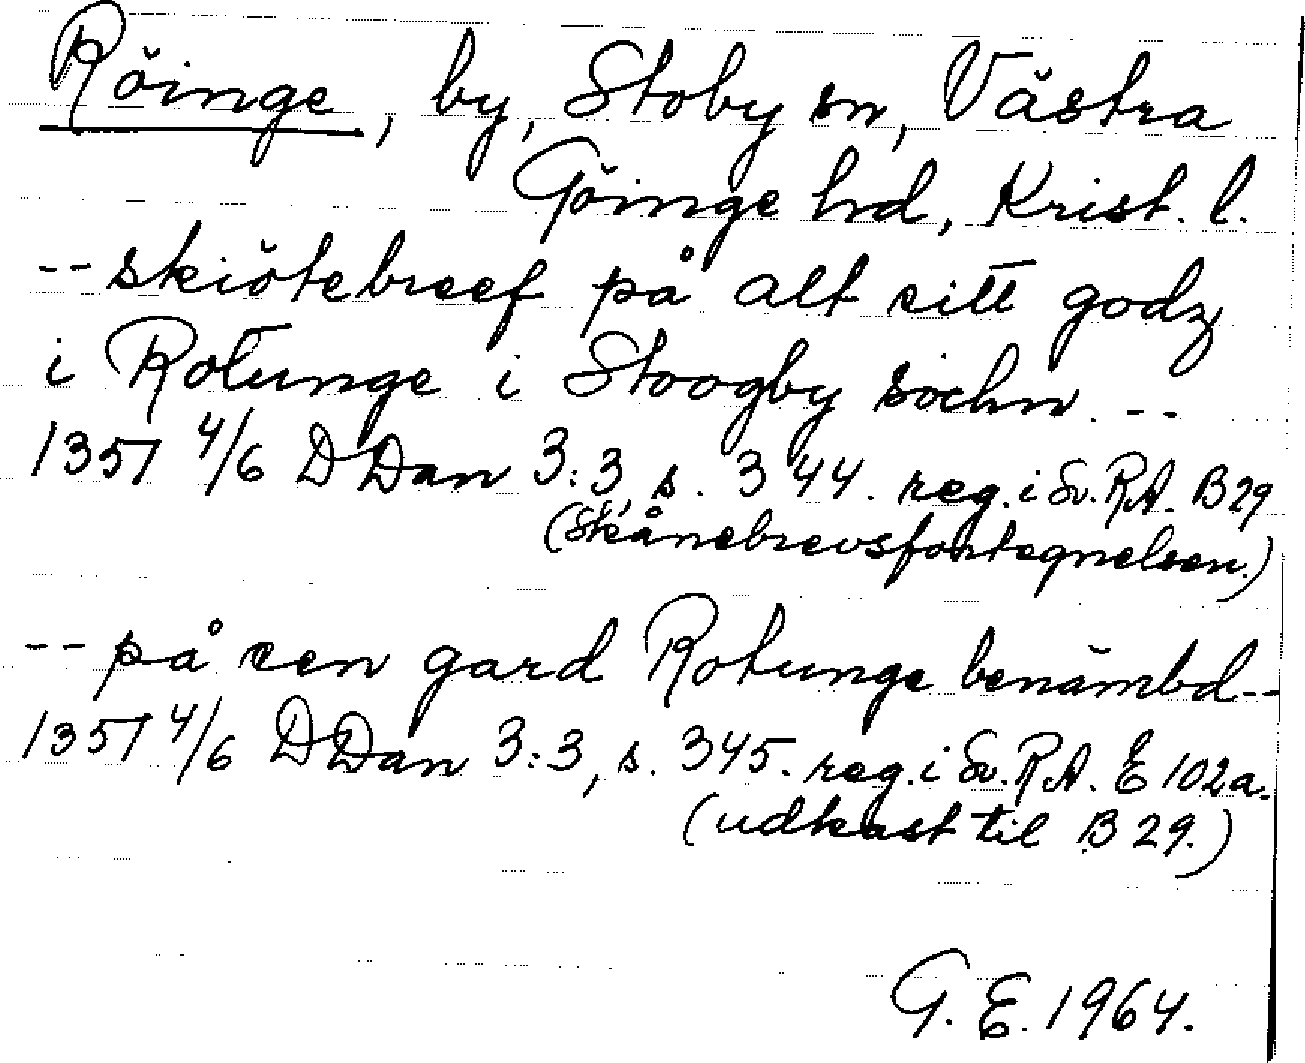 Röinge, by, Stoby sn, Västra
Göinge hd, Krist. l.
-- skiötebreef på alt sitt godz
i Rotunge i Stoogby sochn --
1357 4/6 DDan 3:3, s. 344. reg. i Sv. RA. B 29
(Skånebrevsfortegnelsen.)
-- på een gard Rotunge benämbd --
1357 4/6 DDan 3:3, s. 345. reg. i Sv. RA. E 102a.
(udkast til B 29.)
G. E. 1964.